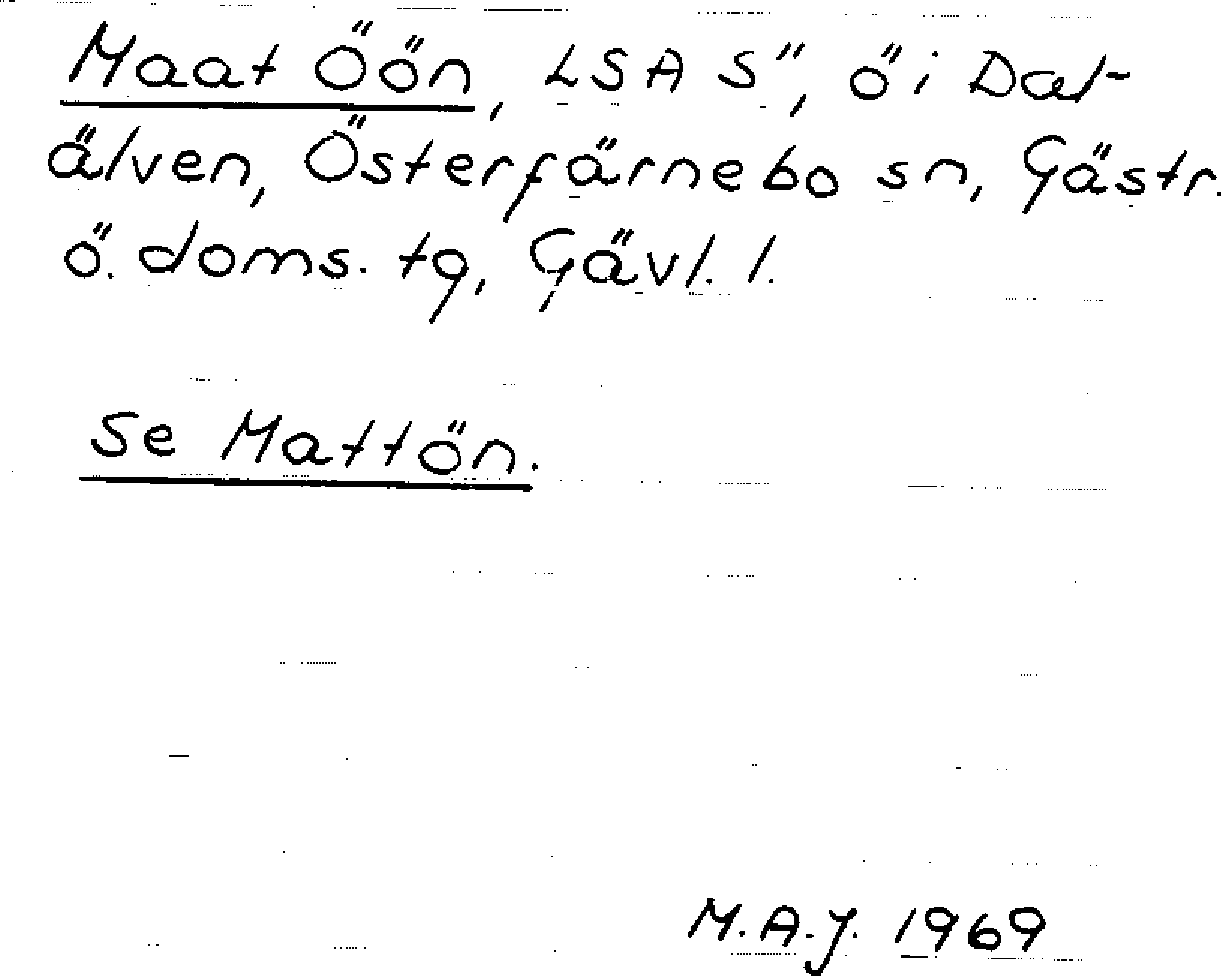 Maat Öön, LSA S", ö i Dal-
älven, Österfärnebo sn, Gästr.
ö. doms. tg, Gävl. l.
Se Mattön.
M.A.J. 1969